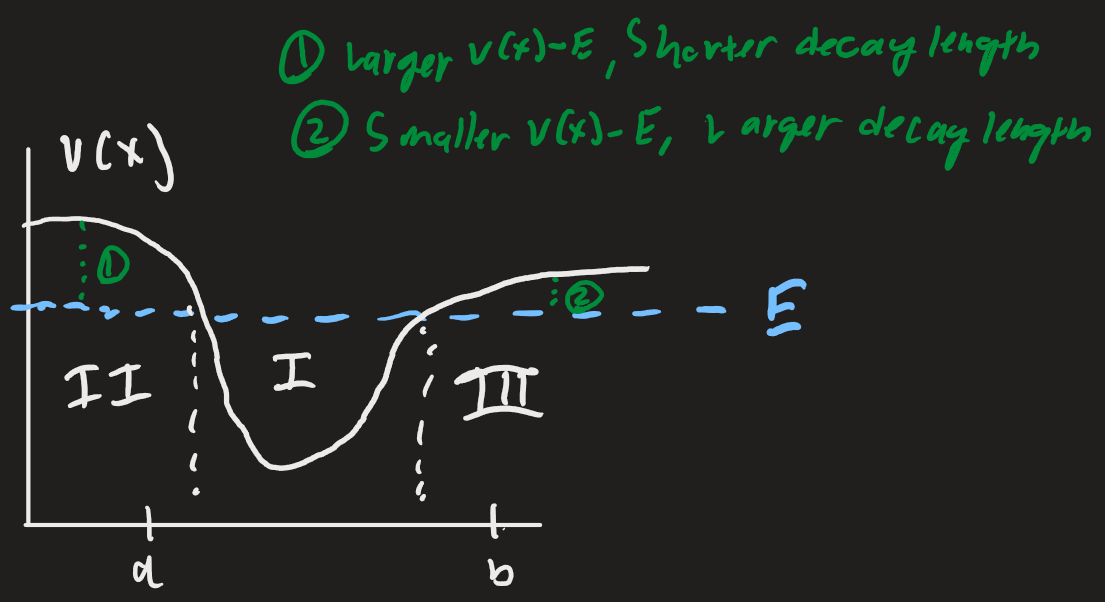 ① Larger V(x)-E, Shorter decay length
② Smaller V(x)-E, Larger decay length
V(x)
①
②
E
II
I
III
a
b